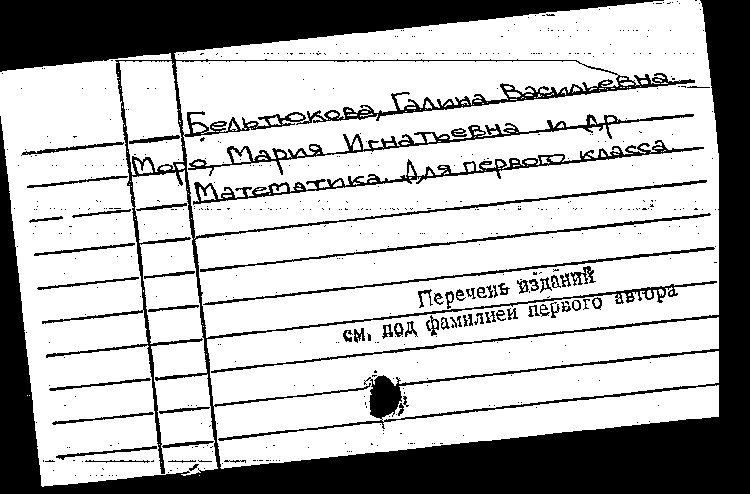 Бельтюкова, Галина Васильевна.
Моро, Мария Игнатьевна и др.
Математика. Для первого класса.
Перечень изданий
см. под фамилией первого автора